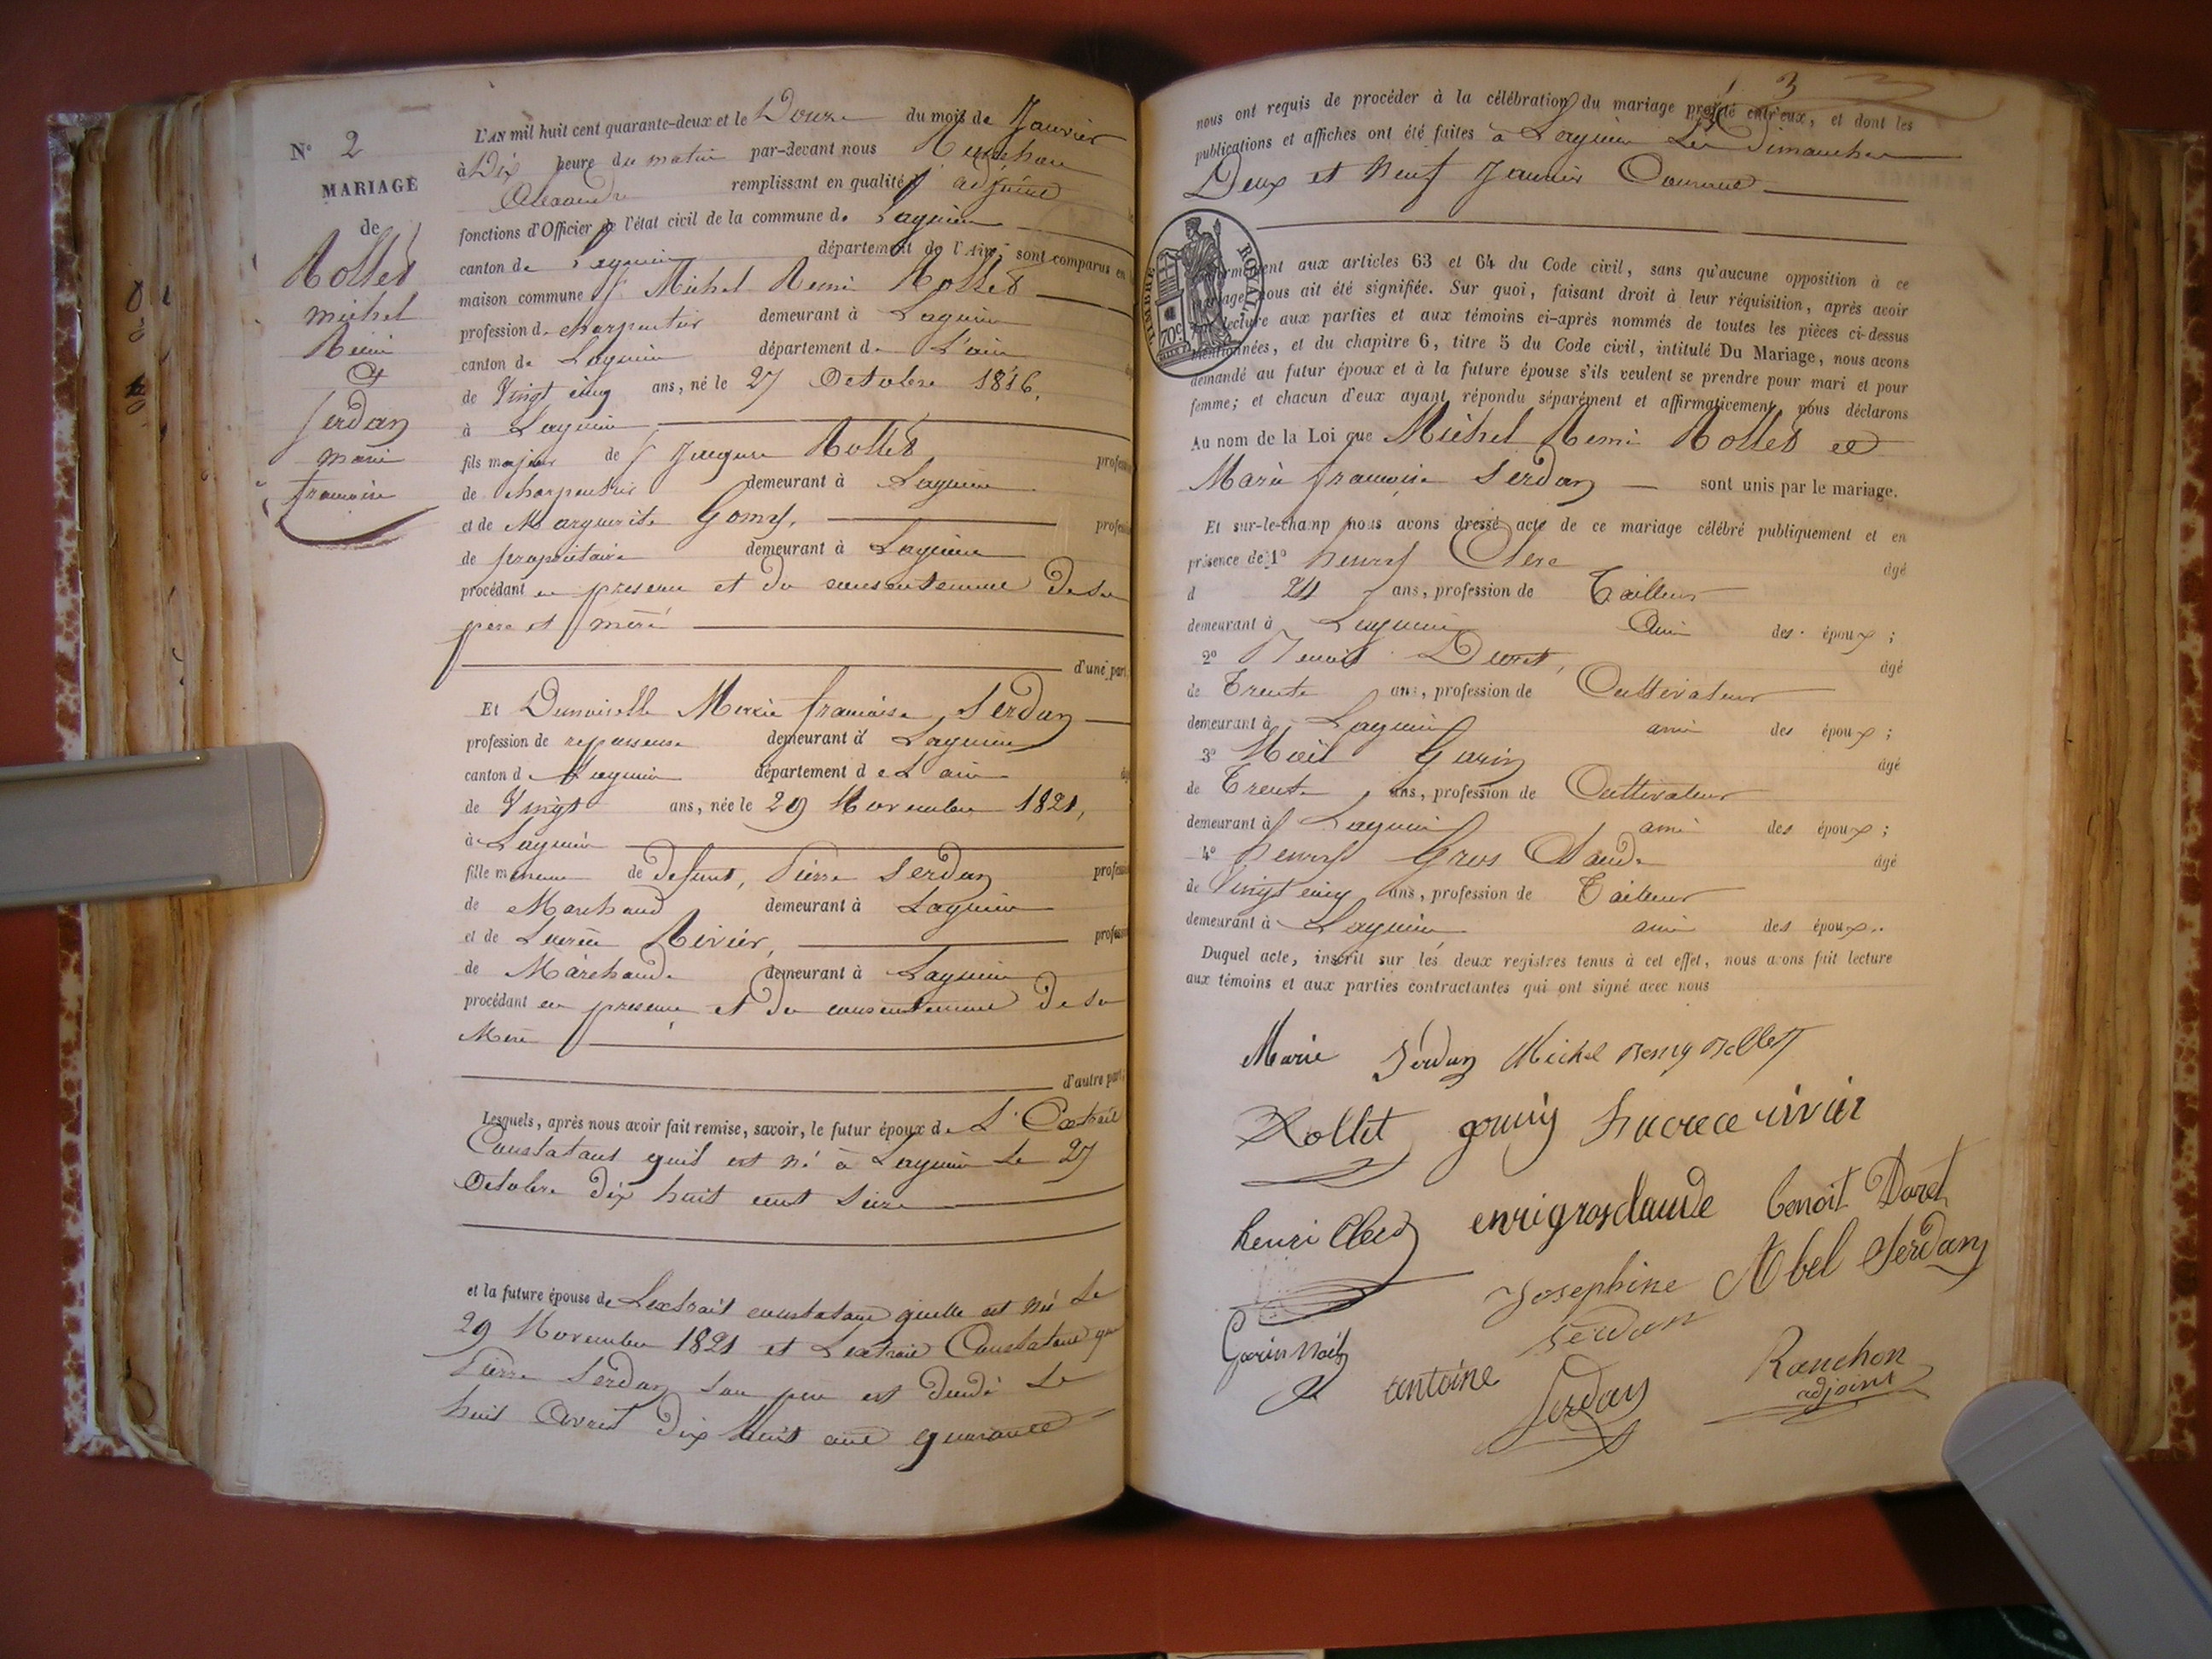 N° 2
MARIAGE
de
Rollet
michel
Remi
et
Serdan
marie
francoise
L'AN mil huit cent quarante-deux et le Douze du mois de Janvier
à Dix heure du matin par-devant nous Ranchon
Alexandre remplissant en qualité d'adjoint les
fonctions d'Officier de l'état civil de la commune de Lagnieu
canton de Lagnieu département de l'Ain, sont comparus en
maison commune Sr Michel Remi Rollet
profession de charpentier demeurant à Lagnieu
canton de Lagnieu département de L'ain
de Vingt cinq ans, né le 27 Octobre 1816,
à Lagnieu
fils majeur de Sr Jacques Rollet profession
de charpentier demeurant à Lagnieu
et de Marguerite Gomy, profession
de propriétaire demeurant à Lagnieu
procédant en presence et du consentement de ses
pere et mère
d'une part,
Et Demoiselle Marie francoise Serdan
profession de repasseuse demeurant à Lagnieu
canton de Lagnieu département de L'ain
de Vingt ans, née le 29 Novembre 1821,
à Lagnieu
fille mineure de defunt, Pierre Serdan profession
de Marchand demeurant à Lagnieu
et de Lucrèce Rivier, profession
de Marchande demeurant à Lagnieu
procédant en presence et du consentement de sa
Mère
d'autre part;
Lesquels, après nous avoir fait remise, savoir, le futur époux de L'Extrait
Constatant quil est né à Lagnieu Le 27
Octobre dix huit cent seize
et la future épouse de Lextrait constatant quelle est née Le
29 Novembre 1821 et Lextrait Constatant que
Pierre Serdan son pere est décédé Le
huit Avril dix huit cent quarante
3
nous ont requis de procéder à la célébration du mariage projeté entr'eux, et dont les
publications et affiches ont été faites à Lagnieu Les Dimanches
Deux et Neuf Janvier Courant
TIMBRE ROYAL
70c
conformément aux articles 63 et 64 du Code civil, sans qu'aucune opposition à ce
mariage nous ait été signifiée. Sur quoi, faisant droit à leur réquisition, après avoir
lecture aux parties et aux témoins ci-après nommés de toutes les pièces ci-dessus
mentionnées, et du chapitre 6, titre 5 du Code civil, intitulé Du Mariage, nous avons
demandé au futur époux et à la future épouse s'ils veulent se prendre pour mari et pour
femme; et chacun d'eux ayant répondu séparément et affirmativement, nous déclarons
Au nom de la Loi que Michel Remi Rollet et
Marie francoise Serdan sont unis par le mariage.
Et sur-le-champ nous avons dressé acte de ce mariage célébré publiquement et en
présence de 1° henry Clerc âgé
d 24 ans, profession de Tailleur
demeurant à Lagnieu Ami des époux;
2° Benoit Duret, âgé
de Trente ans, profession de Cultivateur
demeurant à Lagnieu ami des époux;
3° Noël Garin âgé
de Trente ans, profession de Cultivateur
demeurant à Lagnieu ami des époux;
4° henry Gros Claude âgé
de Vingt cinq ans, profession de Tailleur
demeurant à Lagnieu ami des époux.
Duquel acte, inscrit sur les deux registres tenus à cet effet, nous avons fait lecture
aux témoins et aux parties contractantes qui ont signé avec nous
Marie Serdan Michel remy rollet
Rollet gomy Lucrece rivier
henri Clerc enrigrosclaude benoit Duret
Josephine Serdan Abel Serdan
Garin Noël antoine Serdan Ranchon
adjoint